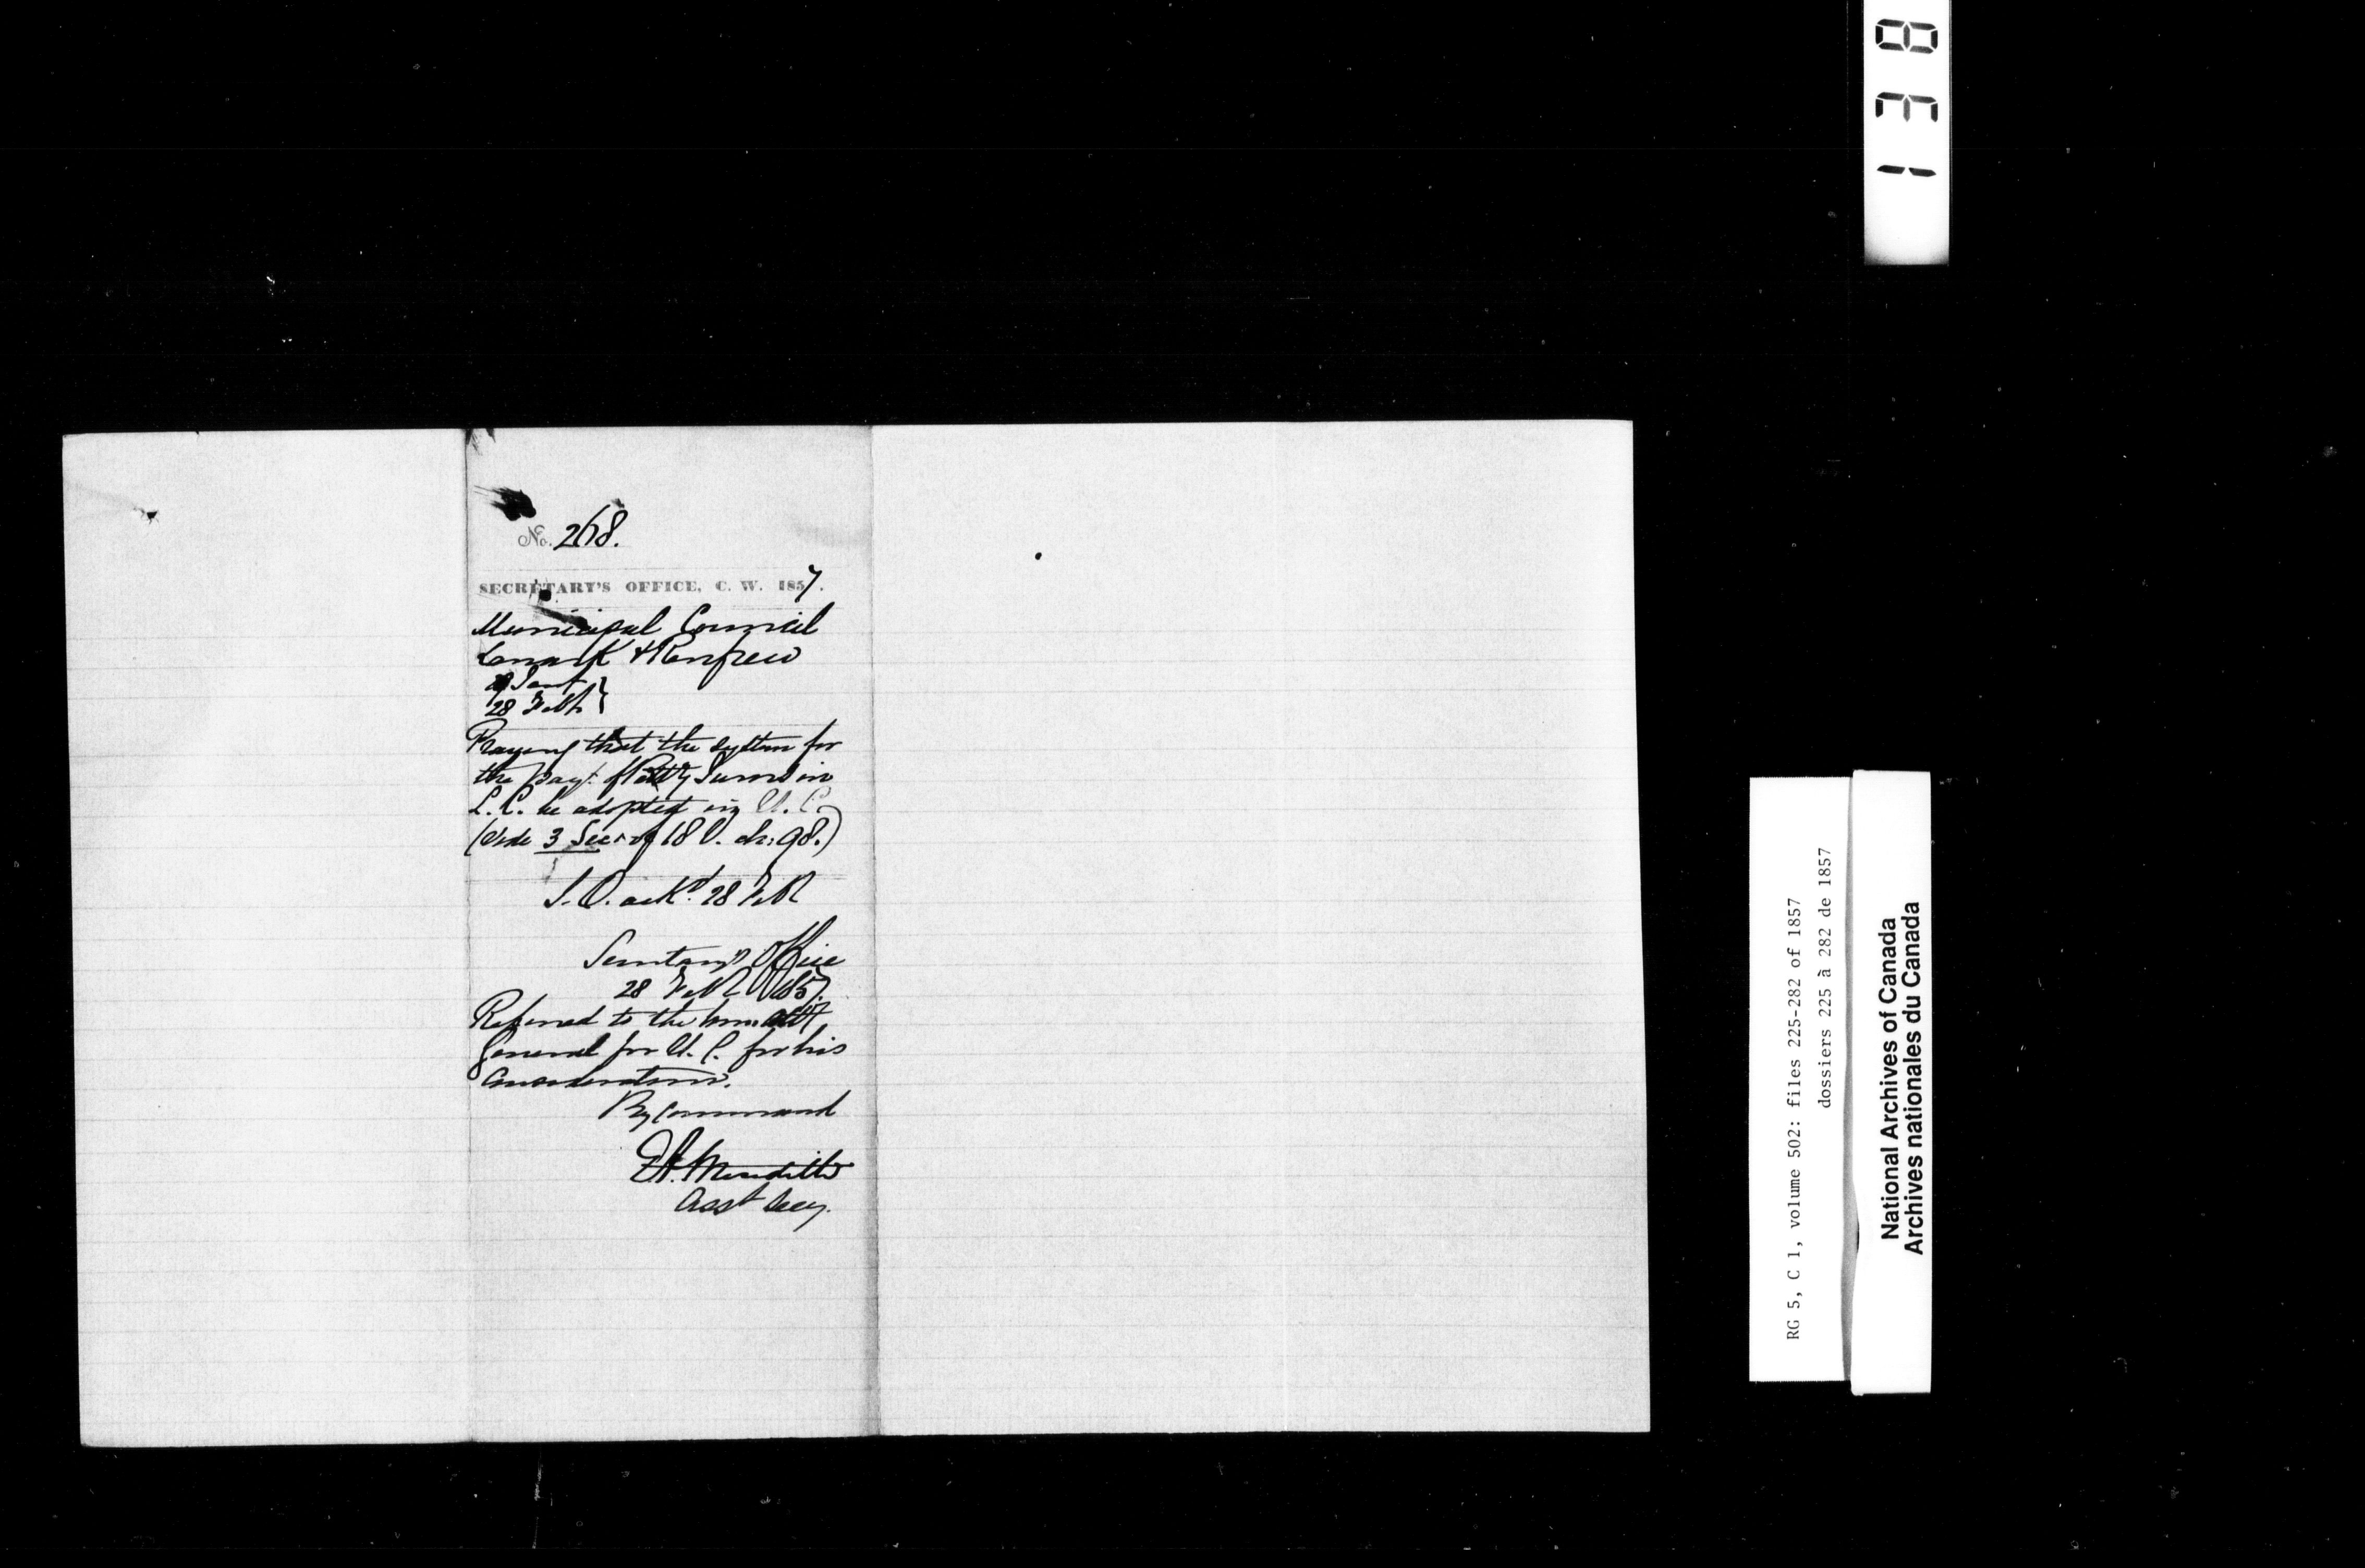 138
No. 268.
SECRETARY'S OFFICE, C. W. 1857.
Municipal Council
Lanark & Renfrew
28 Feb
Praying that the system for
the payt. of Petty Jurors in
L. C. be adopted in U. C.
(Vide 3 Sec. of 18 V. ch: 98.)
ackd. 28 Feb
Secretary's Office
28 Feb 1857.
Referred to the Hon. Atty
General for U. C. for his
Consideration.
By Command
E A. Meredith
Asst Secy.
RG 5, C 1, volume 502: files 225-282 of 1857
dossiers 225 à 282 de 1857
National Archives of Canada
Archives nationales du Canada